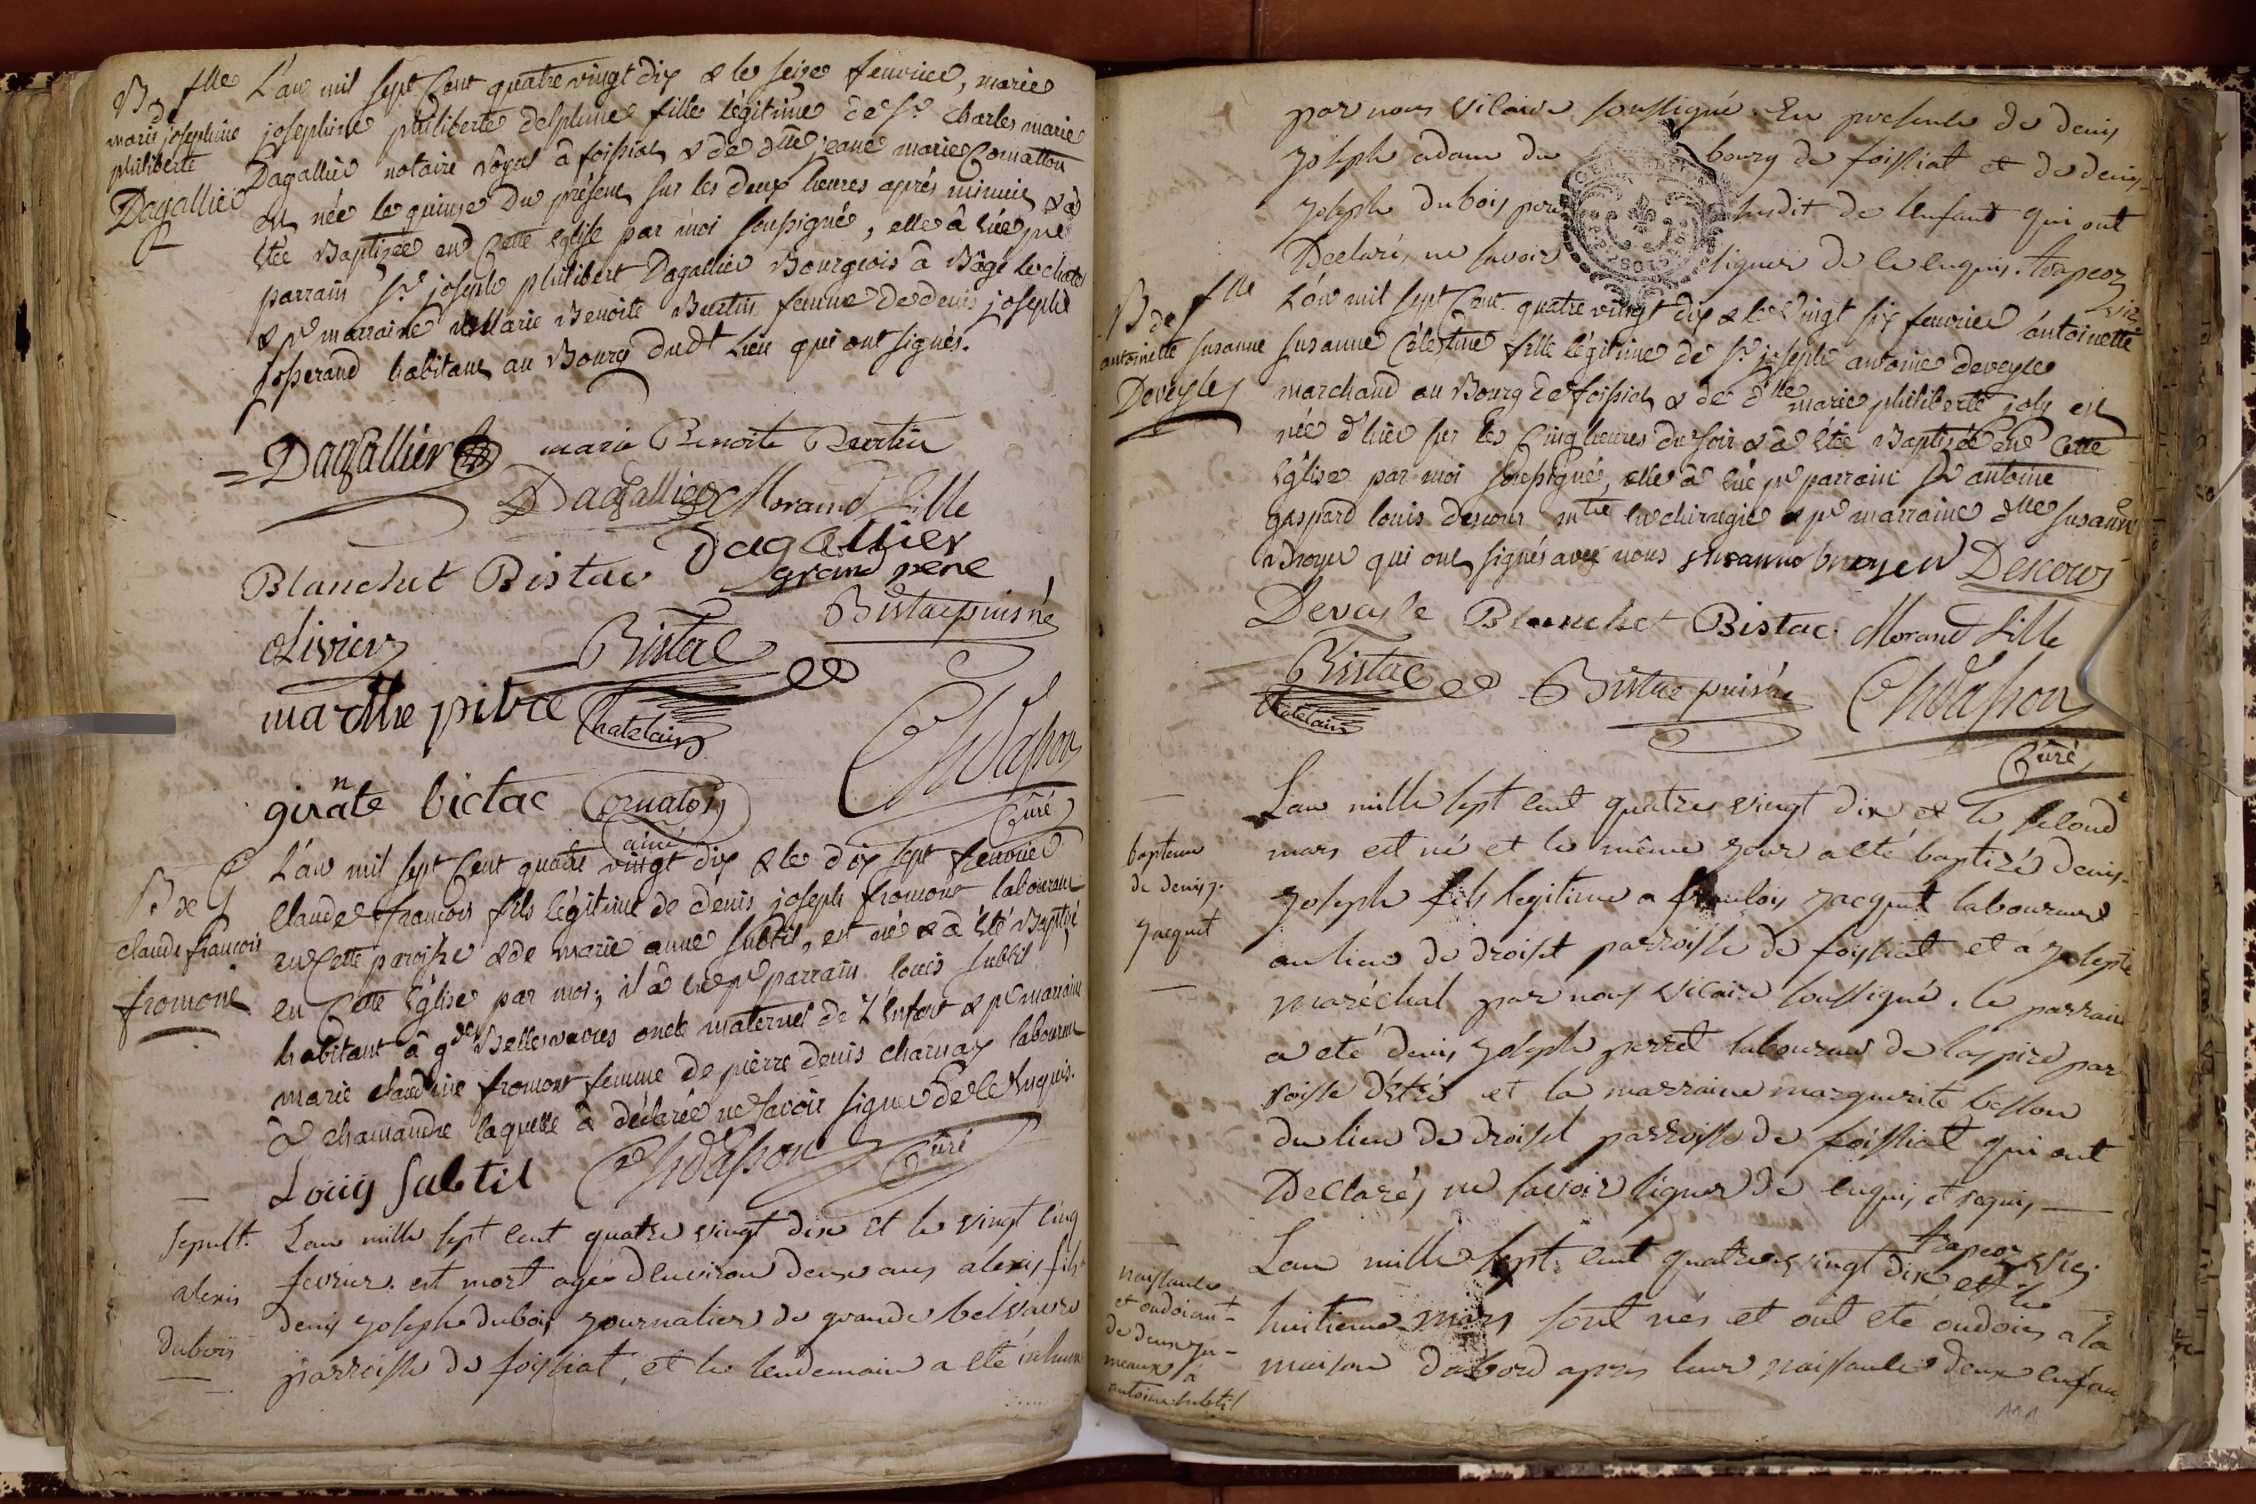 B de flle
marie josephine
philiberte
Dagallier
L'an mil sept Cent quatre vingt dix & le seize feuvrier, marie
josephine philiberte delphine fille légitime de Sr charles marie
Dagallier notaire royal à foissiat & de dlle jeane marie Cornatton
est née le quinze du présent sur les deux heures après minuit & à
étée Baptisée en Cette église par moi soussigné, elle à eüe pr
parrain Sr joseph philibert Dagallier Bourgeois à Bâgé le chatel
& pr marraine marie Benoite Burtin femme de denis joseph
josserand habitant au Bourg dudt Lieu qui ont signés.
Dagallier marie Benoite Burtin
Dagallier Morand fille
Blanchet Bistac Dagallier
grand pere
olivier Bistac Bistac puisné
marthe pitre Chatelain
ginnate bictac Cornaton
ainé
Chvasson
Curé
B de
claude francois
fromont
L'an mil sept Cent quatre vingt dix & le dix sept feuvrier
Claude francois fils légitime de denis joseph fromont laboureur
en Cette paroisse & de marie anne subtil, est né & à été Baptisé
en Cette église par moi; il à eu pr parrain louis subtil
habitant à gde Bellevavres oncle maternel de l'enfant & pr marraine
marie claudine fromont femme de pierre denis charnay laboureur
à chamandre laquelle à déclarée ne savoir signer de Ce enquis.
Louis subtil Chvasson Curé
sepult.
alexis
dubois
Lan mille sept cent quatre vingt dix et le vingt cinq
fevrier. est mort agé denviron deux ans alexis fils
denis joseph dubois journalier de grande belvavre
parroisse de foissiat, et le lendemain a été inhumé
par nous vicaire soussigné. En presence de denis
joseph adam du bourg de foissiat et de denis
joseph dubois pere susdit de lenfant qui ont
Declaré ne savoir signer de ce enquis. trapeoz
vic
B de flle
antoinette susanne
Deveyle
L'an mil sept Cent quatre vingt dix & le vingt six feuvrier antoinette
susanne Célestine fille légitime de Sr joseph antoine deveyle
marchand au Bourg de foissiat & de dlle marie philiberte joly est
née d'hier sur les Cinq heures du soir & à étée Baptisée en Cette
église par moi soussigné, elle à eüe pr parrain Sr antoine
gaspard louis descours mtre en chirurgie & pr marraine dlle susanne
Broyer qui ont signés avec nous susanne broyer Descours
Deveyle Blanchet Bistac Morand fille
Bistac Bistac puisné Chvasson
Chatelain
Curé
bapteme
de denis j.
jacquet
Lan mille sept cent quatre vingt dix et le second
mars est né et le même jour a eté baptizé denis
joseph fils legitime a francois jacquet laboureur
au lieu de droiset parroisse de foissiat et a josepte
maréchal par nous vicaire soussigné. le parrain
a eté denis joseph perret laboureur de laspire par
roisse détré et la marraine marguerite besson
du lieu de droiset parroisse de foissiat qui ont
Declarés ne savoir signer de enquis et requis
trapeoz vic.
naissance
et ondoiemt
de deux ju
meaux à
antoine subtil
Lan mille sept cent quatre vingt dix et le
huitieme mars sont nés et ont eté ondoiés a la
maison dabord apres leur naissance deux enfan